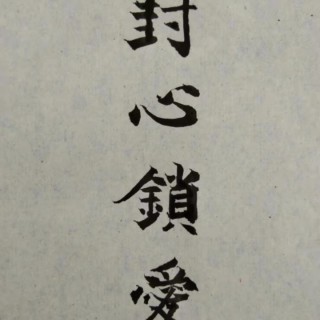 封心鎖愛